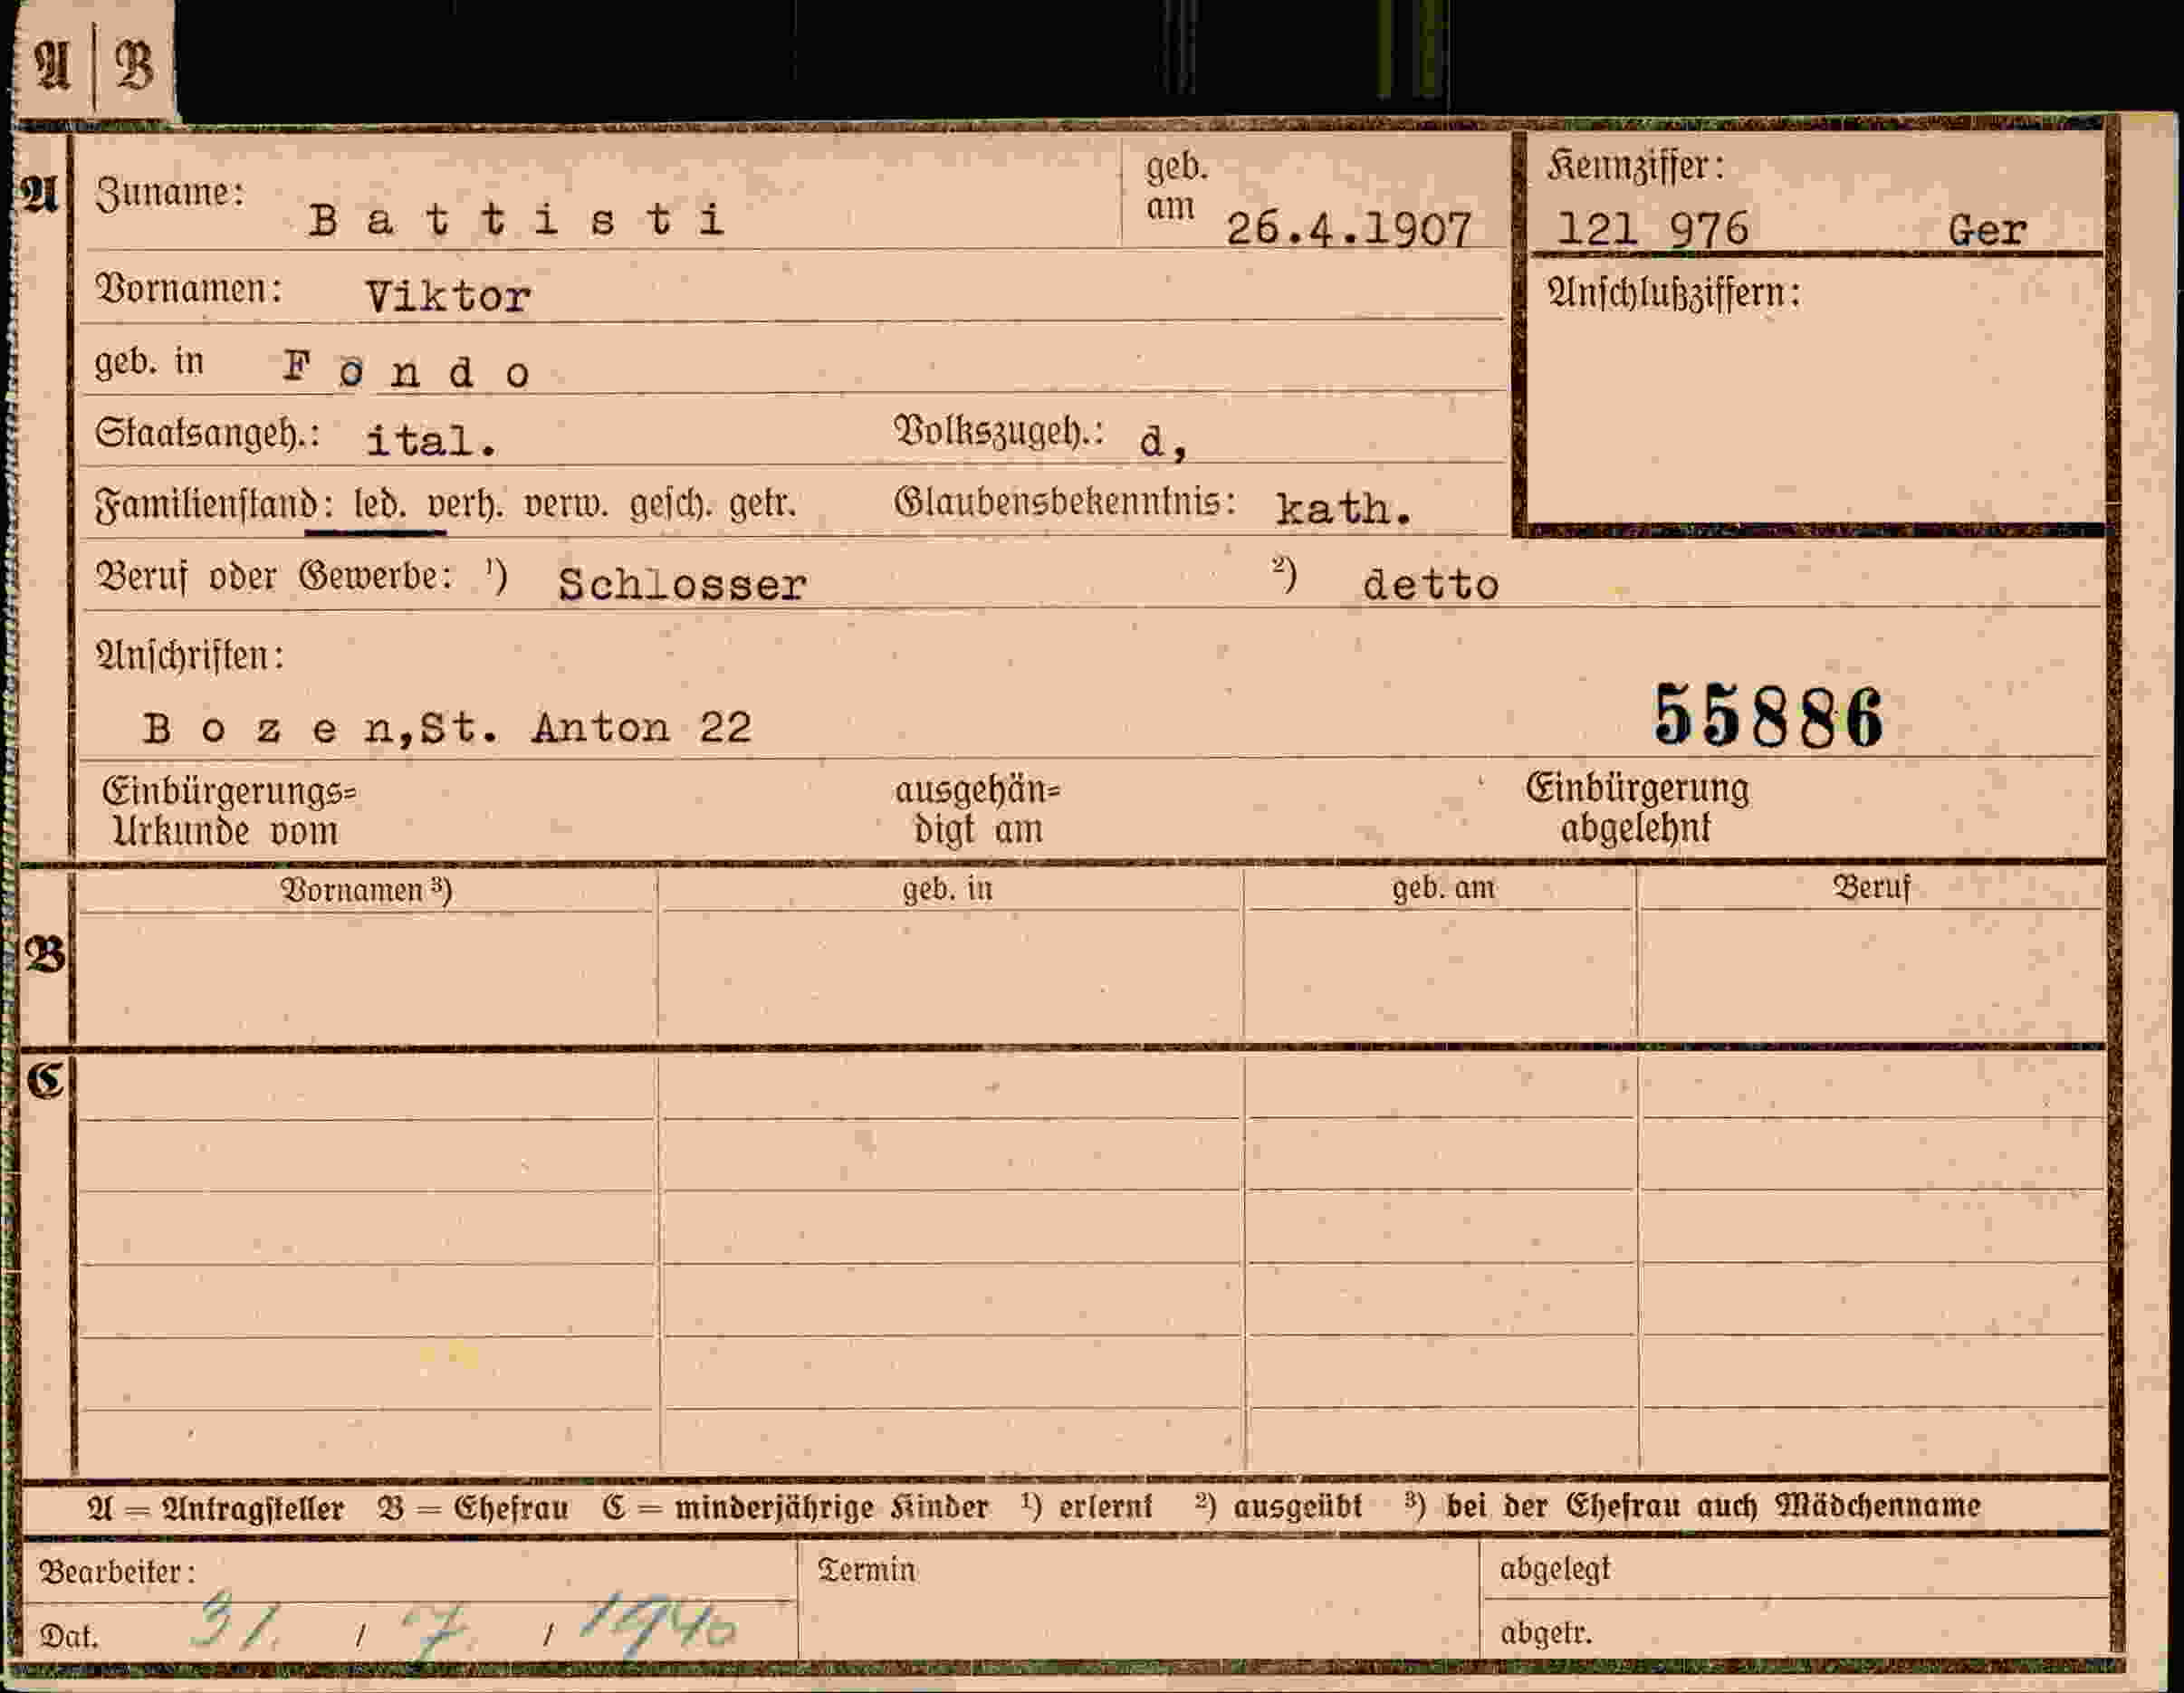 A | B
A Zuname: Battisti geb. am 26.4.1907 Kennziffer: 121 976 Ger
Vornamen: Viktor Anschlußziffern:
geb. in Fondo
Staatsangeh.: ital. Volkszugeh.: d,
Familienstand: led. verh. verw. gesch. getr. Glaubensbekenntnis: kath.
Beruf oder Gewerbe: ¹) Schlosser ²) detto
Anschriften:
Bozen, St. Anton 22 55886
Einbürgerungs= ausgehän= Einbürgerung
Urkunde vom digt am abgelehnt
Vornamen ³) geb. in geb. am Beruf
B
C
A = Antragsteller B = Ehefrau C = minderjährige Kinder ¹) erlernt ²) ausgeübt ³) bei der Ehefrau auch Mädchenname
Bearbeiter: Termin abgelegt
Dat. 31. / 7. / 1940 abgetr.